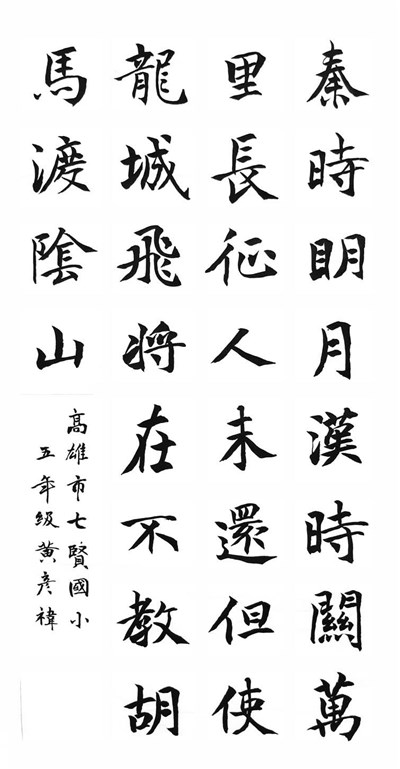 秦時明月漢時關萬
里長征人未還但使
龍城飛将在不教胡
馬渡陰山
高雄市七賢國小
五年級黃彥禕